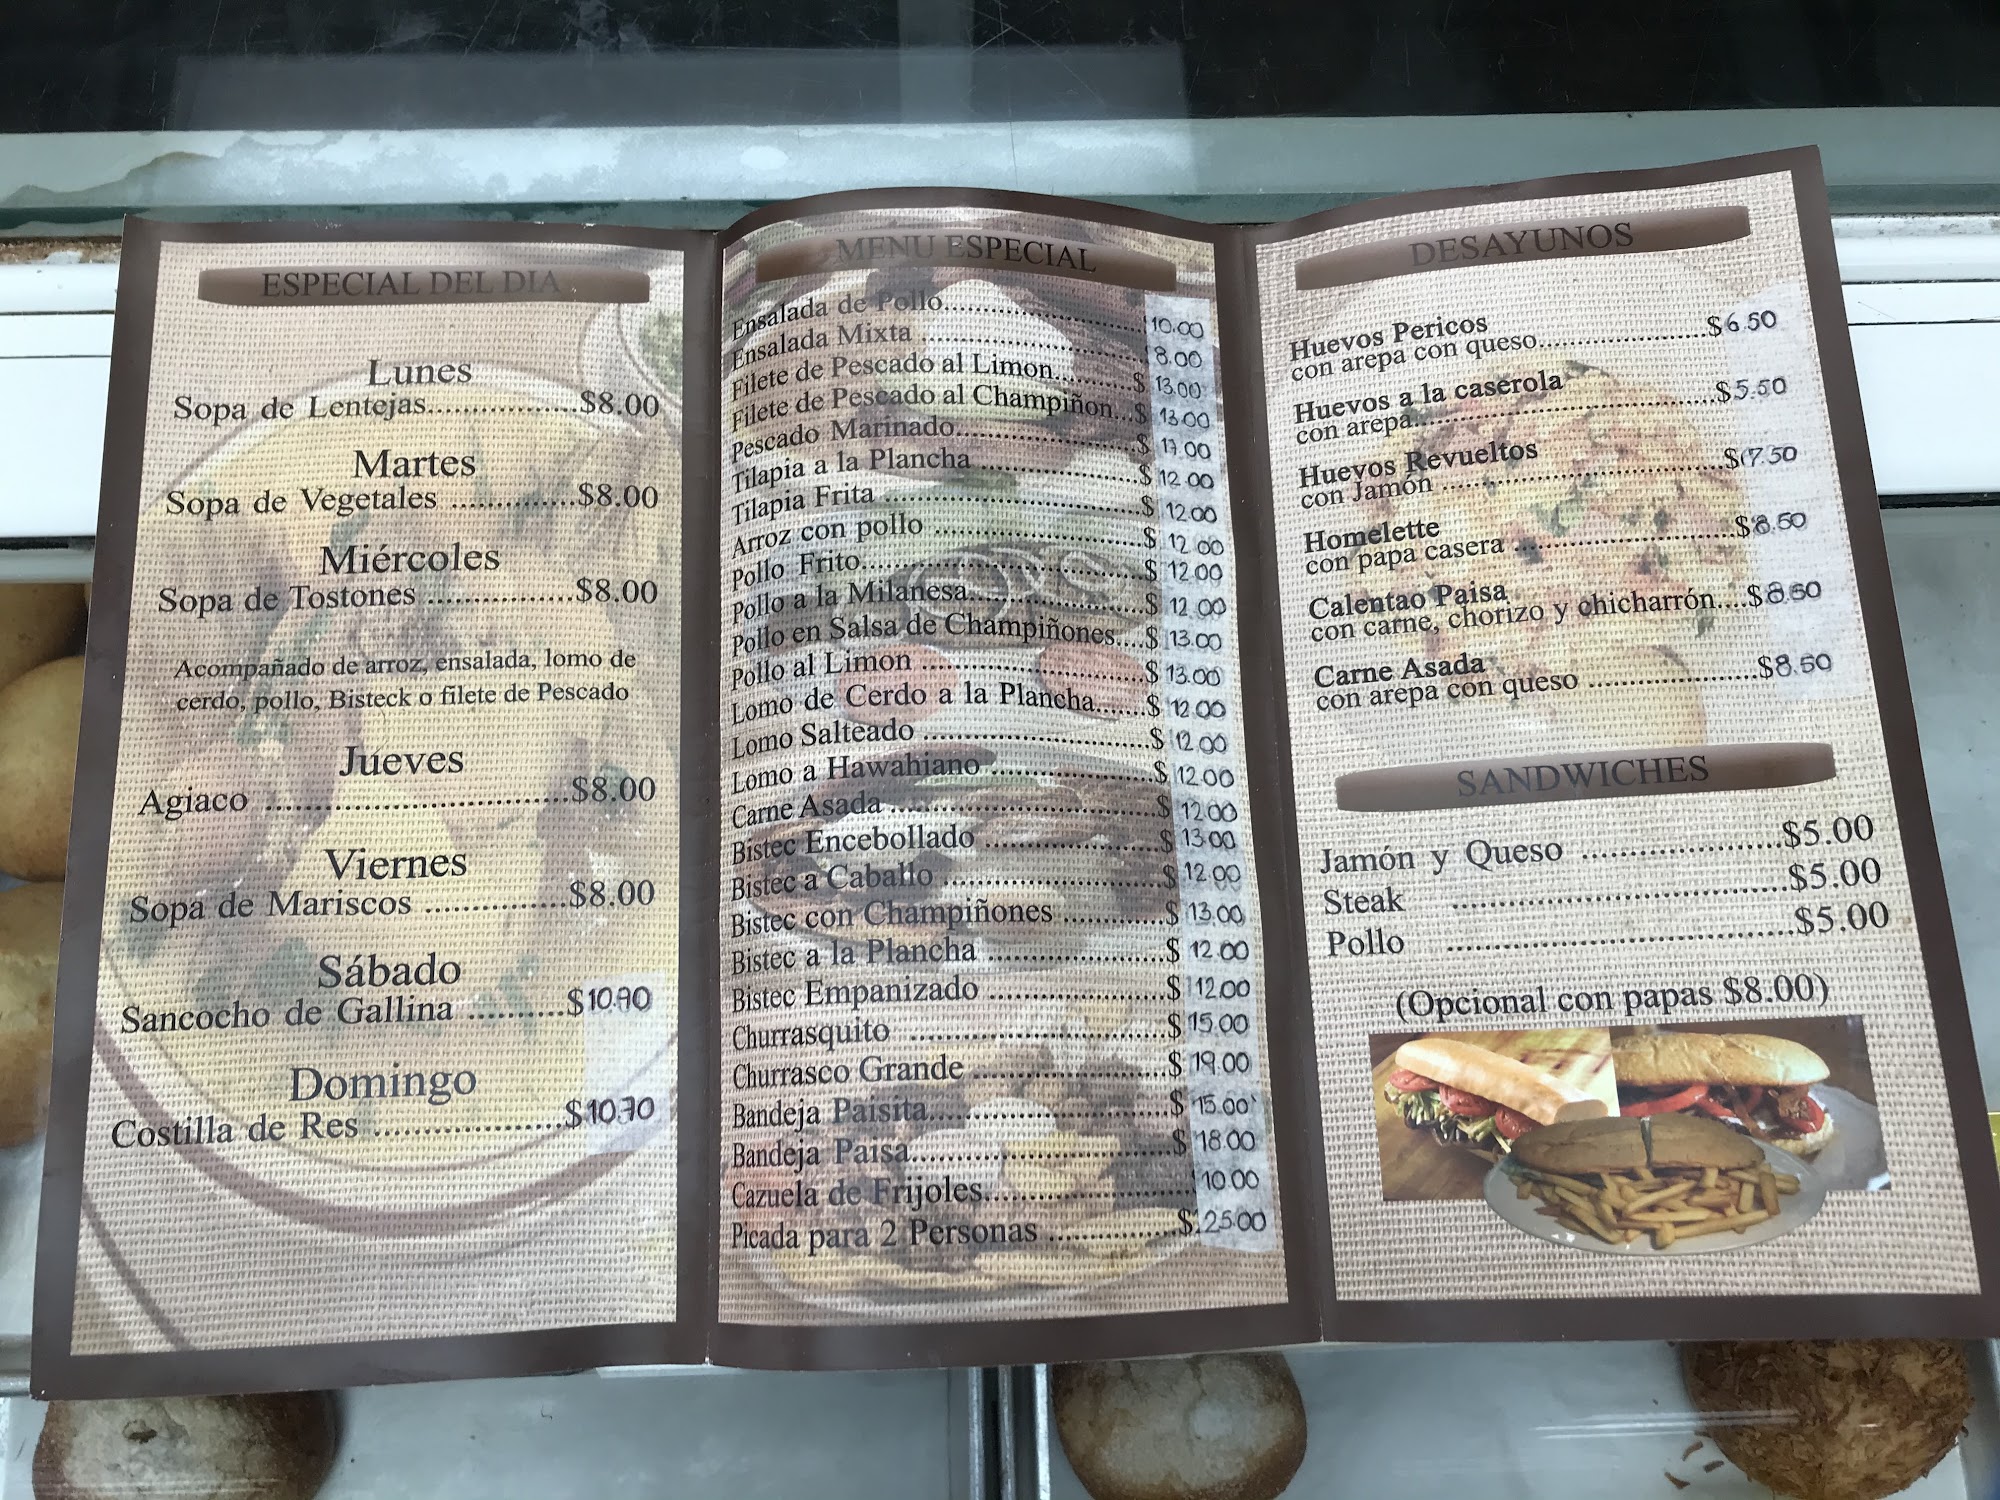 ESPECIAL DEL DIA
Lunes
Sopa de Lentejas..................$8.00
Martes
Sopa de Vegetales ...............$8.00
Miércoles
Sopa de Tostones .................$8.00
Acompañado de arroz, ensalada, lomo de
cerdo, pollo, Bisteck o filete de Pescado
Jueves
Agiaco ....................................$8.00
Viernes
Sopa de Mariscos .................$8.00
Sábado
Sancocho de Gallina ..........$
Domingo
Costilla de Res ....................$10.70
MENU ESPECIAL
Ensalada de Pollo.......................... 10.00
Ensalada Mixta .............................. 8.00
Filete de Pescado al Limon..........$ 13.00
Filete de Pescado al Champiñon...$ 13.00
Pescado Marinado........................$
Tilapia a la Plancha ......................$ 12.00
Tilapia Frita ..................................$ 12.00
Arroz con pollo ............................$ 12.00
Pollo Frito.....................................$ 12.00
Pollo a la Milanesa.......................$ 12.00
Pollo en Salsa de Champiñones....$ 13.00
Pollo al Limon .............................$ 13.00
Lomo de Cerdo a la Plancha.......$ 12.00
Lomo Salteado .............................$ 12.00
Lomo a Hawahiano .....................$ 12.00
Carne Asada .................................$ 12.00
Bistec Encebollado ......................$ 13.00
Bistec a Caballo ...........................$ 12.00
Bistec con Champiñones .............$ 13.00
Bistec a la Plancha .......................$ 12.00
Bistec Empanizado ......................$ 12.00
Churrasquito .................................$ 15.00
Churrasco Grande ........................$ 19.00
Bandeja Paisita.............................$ 15.00
Bandeja Paisa...............................$ 18.00
Cazuela de Frijoles......................... 10.00
Picada para 2 Personas ................$ 25.00
DESAYUNOS
Huevos Pericos
con arepa con queso.......................$6.50
Huevos a la caserola
con arepa........................................$5.50
Huevos Revueltos
con Jamón ......................................$7.50
Homelette
con papa casera .............................$8.50
Calentao Paisa
con carne, chorizo y chicharrón....$8.50
Carne Asada
con arepa con queso ......................$8.50
SANDWICHES
Jamón y Queso ......................$5.00
Steak .....................................$5.00
Pollo .....................................$5.00
(Opcional con papas $8.00)